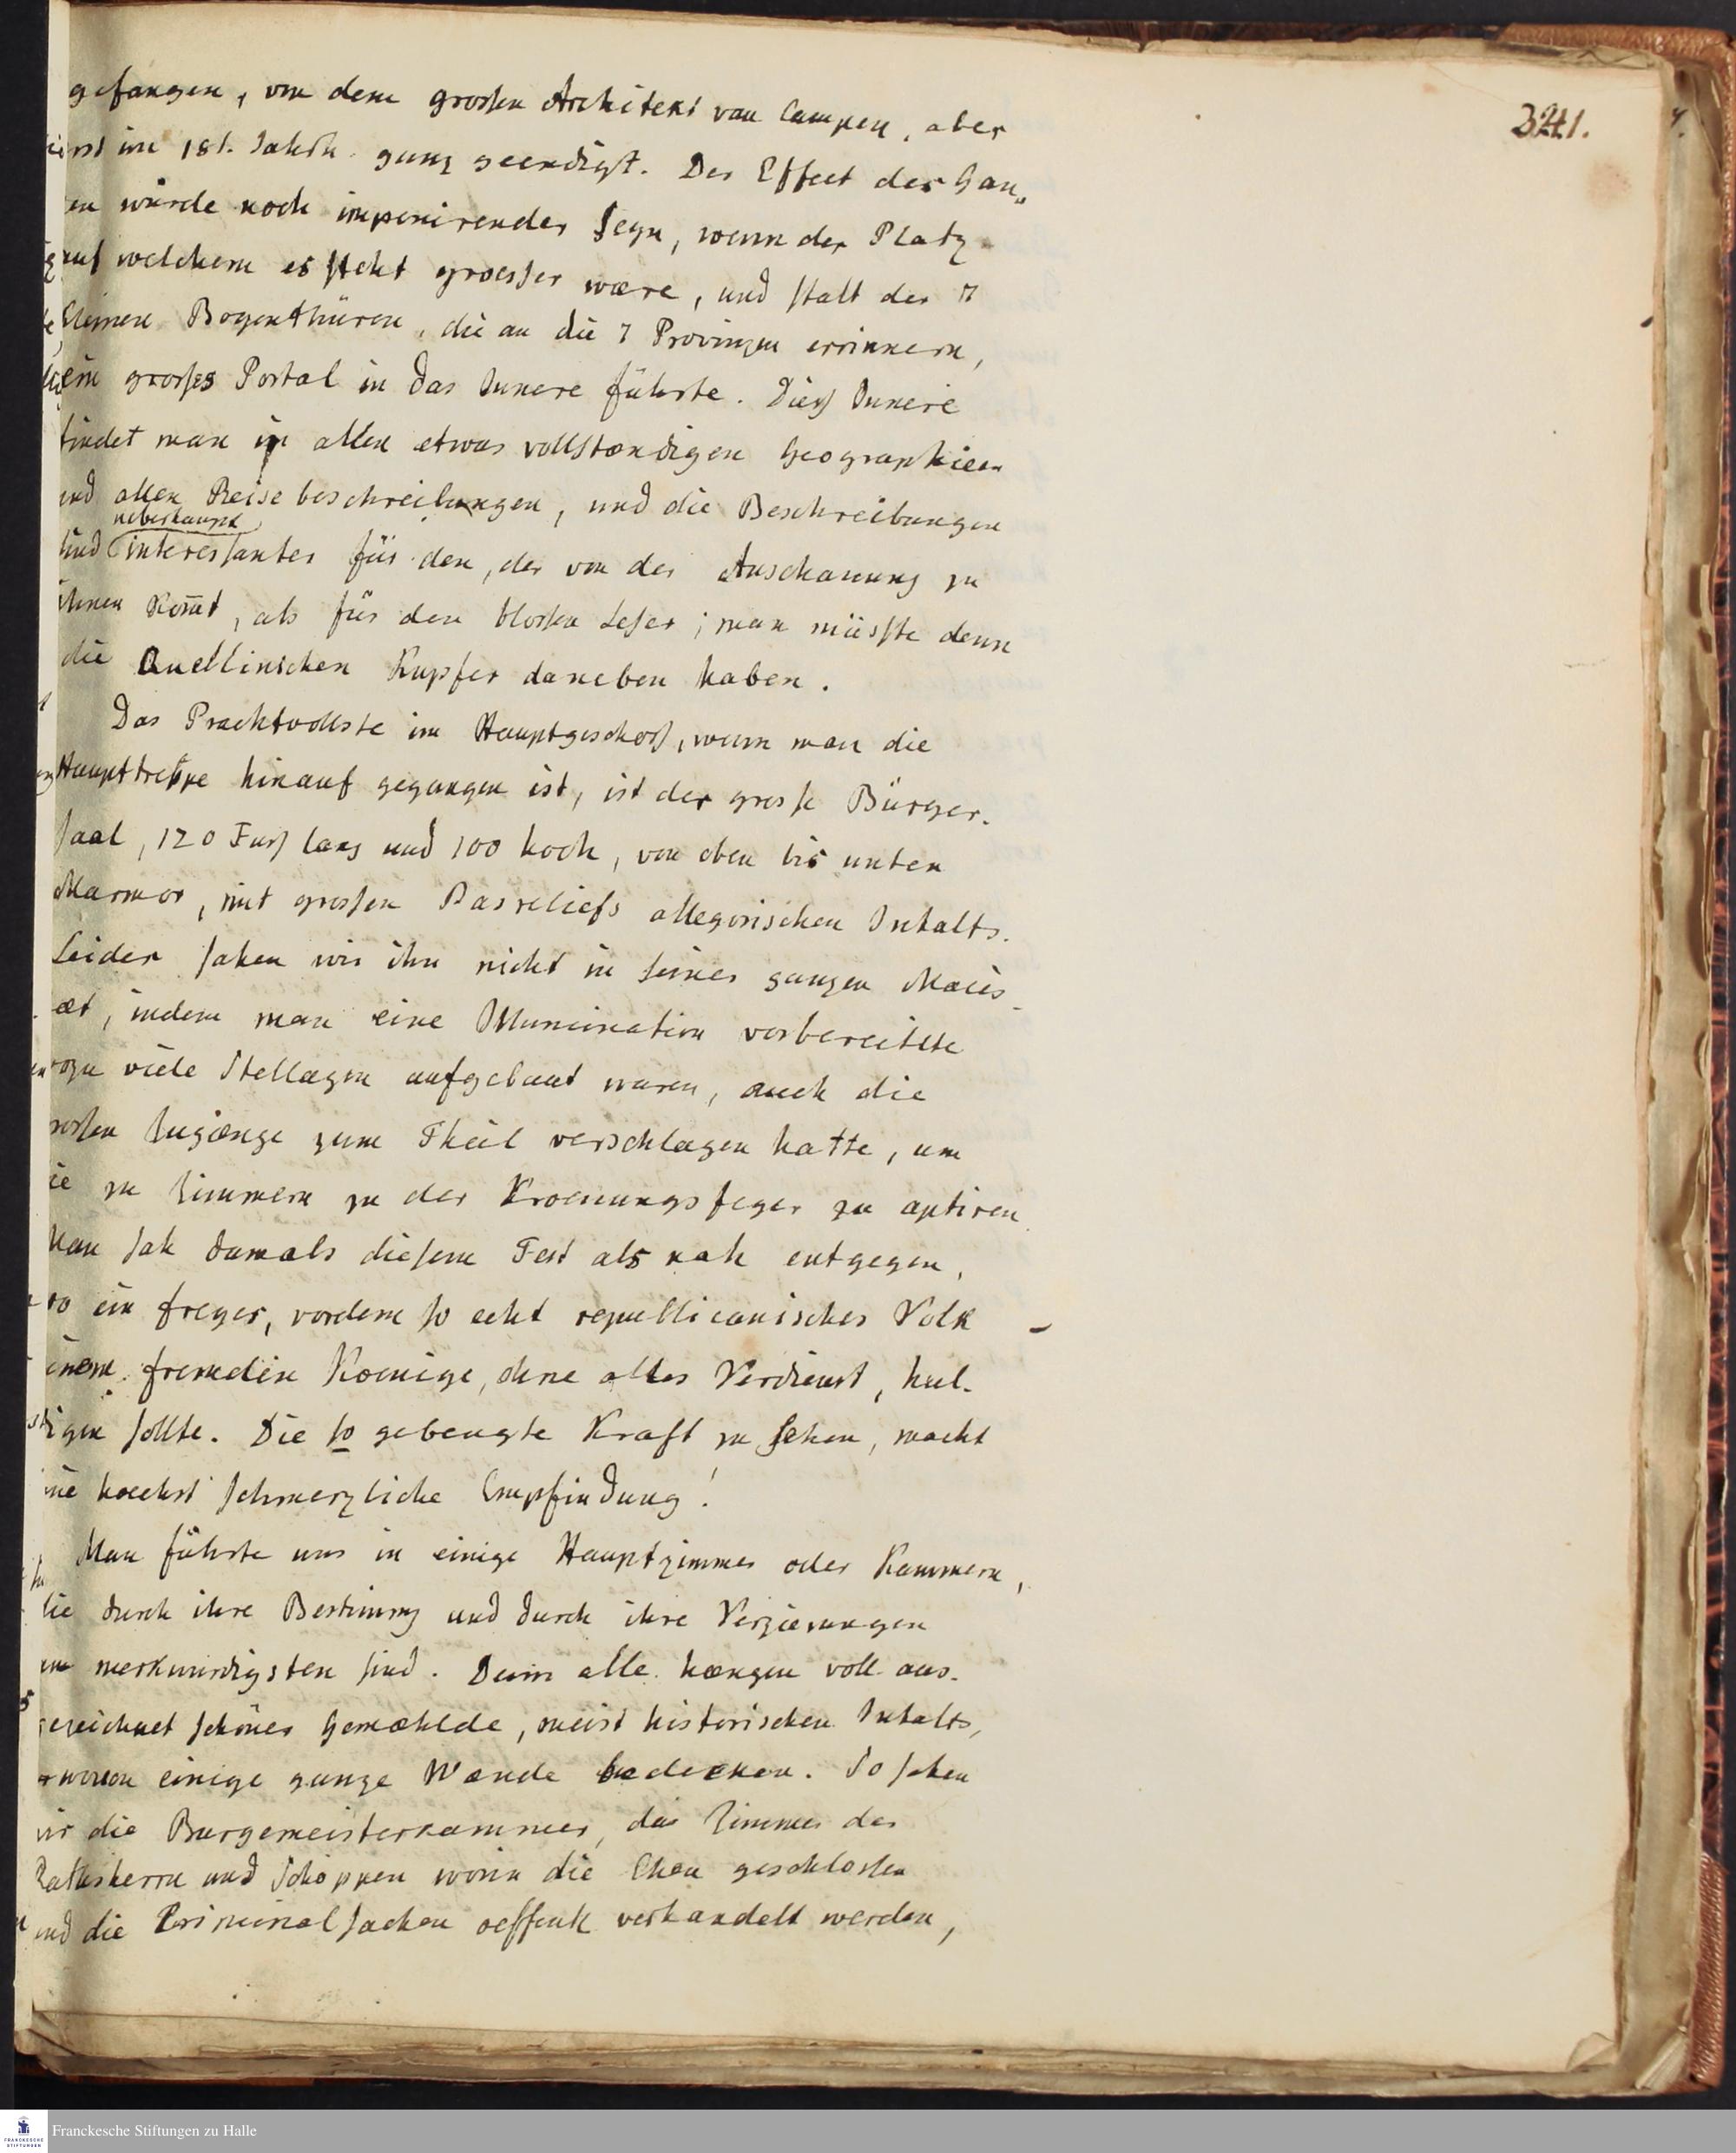 241.
gefangen, von dem grossen Architekt van Campen, aber
erst im 18t. Jahrh. ganz geendigt. Der Effect des Gan„
en würde noch imponirender seyn, wenn der Platz
auf welchem es steht groesser wære, und statt der 7
kleinen Bogenthüren, die an die 7 Provinzen errinnern,
ein grosses Portal in das Innere führte. Dies Innere
findet man in allen etwas vollstændigen Geographien
und allen Reisebeschreibungen, und die Beschreibungen
ueberhaupt
sind interessanter für den, der von der Anschauung zu
ihnen kom̄t, als für den blossen Leser; man müsste denn
die Quellinschen Kupfer daneben haben.
Das Prachtvollste im Hauptgeschoss, wenn man die
Haupttreppe hinauf gegangen ist, ist der grosse Bürger-
saal, 120 Fuss lang und 100 hoch, von oben bis unten
Marmor, mit grossen Basreliefs allegorischen Inhalts.
Leider sahen wir ihn nicht in seiner ganzen Maies-
æt, indem man eine Illumination vorbereitete
wozu viele Stellagen aufgebaut waren, auch die
rossen Zugænge zum Theil verschlagen hatte, um
ie zu Zimmern zu der Kroenungsfeyer zu aptiren
Man sah damals diesem Fest als nah entgegen,
wo ein freyes, vordem so echt republicanisches Volk
einem fremden Koenige, ohne alles Verdienst, hul-
digen sollte. Die so gebeugte Kraft zu sehen, macht
ine hoechst schmerzliche Empfindung!
Man führte uns in einige Hauptzimmer oder Kammern,
die durch ihre Bestimng und durch ihre Verzierungen
am merkwürdigsten sind. Denn alle hængen voll aus-
gezeichnet schöner Gemæhlde, meist historischen Inhalts,
wovon einige ganze Wænde bedecken. So sahen
wir die Burgemeisterkammer, das Zimmer der
Rathsherrn und Schöppen worin die Ehen geschlossen
und die Criminalsachen oeffentl verhandelt werden,
Franckesche Stiftungen zu Halle